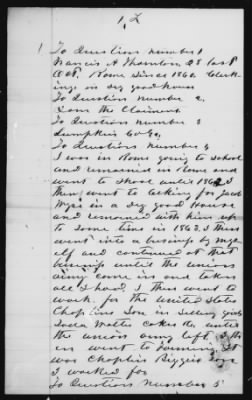 1
To Question number 1
Francis A Thornton 28 last
Rome Since 1860. Clerk
ing in dry good house
To Question number 2,
I am the Claimant
To Question number 3
Lumpkin Co Ga,
To Question number 4
I was in Rome going to school
and remained in Rome and
went to School until 1861 I
then went to Clerking for
in a dry good House
and remained with him up
to Some time in 1862. I then
went into a business by my
self and continued at that
business until the union
army came in and taken
all I had, I then went to
work for the United States
Chaplins Son in Selling goods
Soda Water Cakes &c, until
the union army left. I th
en went to Farming. It
was Chaplin
I worked for
To Question Number 5